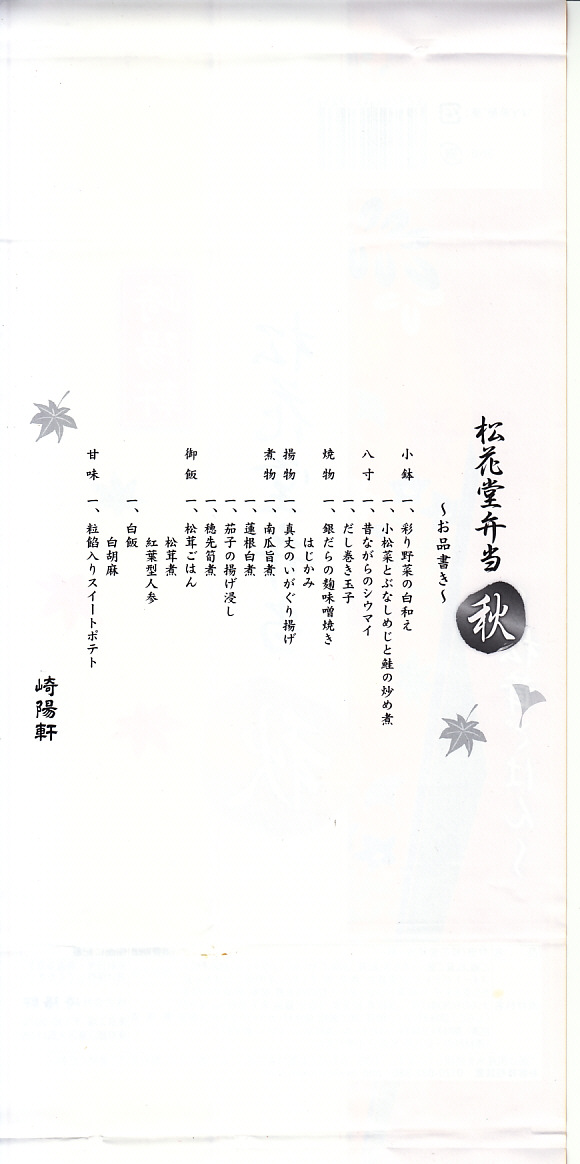 松花堂弁当 秋
～お品書き～
小鉢 一、彩り野菜の白和え
一、小松菜とぶなしめじと鮭の炒め煮
八寸 一、昔ながらのシウマイ
一、だし巻き玉子
焼物 一、銀だらの麹味噌焼き
はじかみ
揚物 一、真丈のいがぐり揚げ
煮物 一、南瓜旨煮
一、蓮根白煮
一、茄子の揚げ浸し
一、穂先筍煮
御飯 一、松茸ごはん
松茸煮
紅葉型人参
一、白飯
白胡麻
甘味 一、粒餡入りスイートポテト
崎陽軒